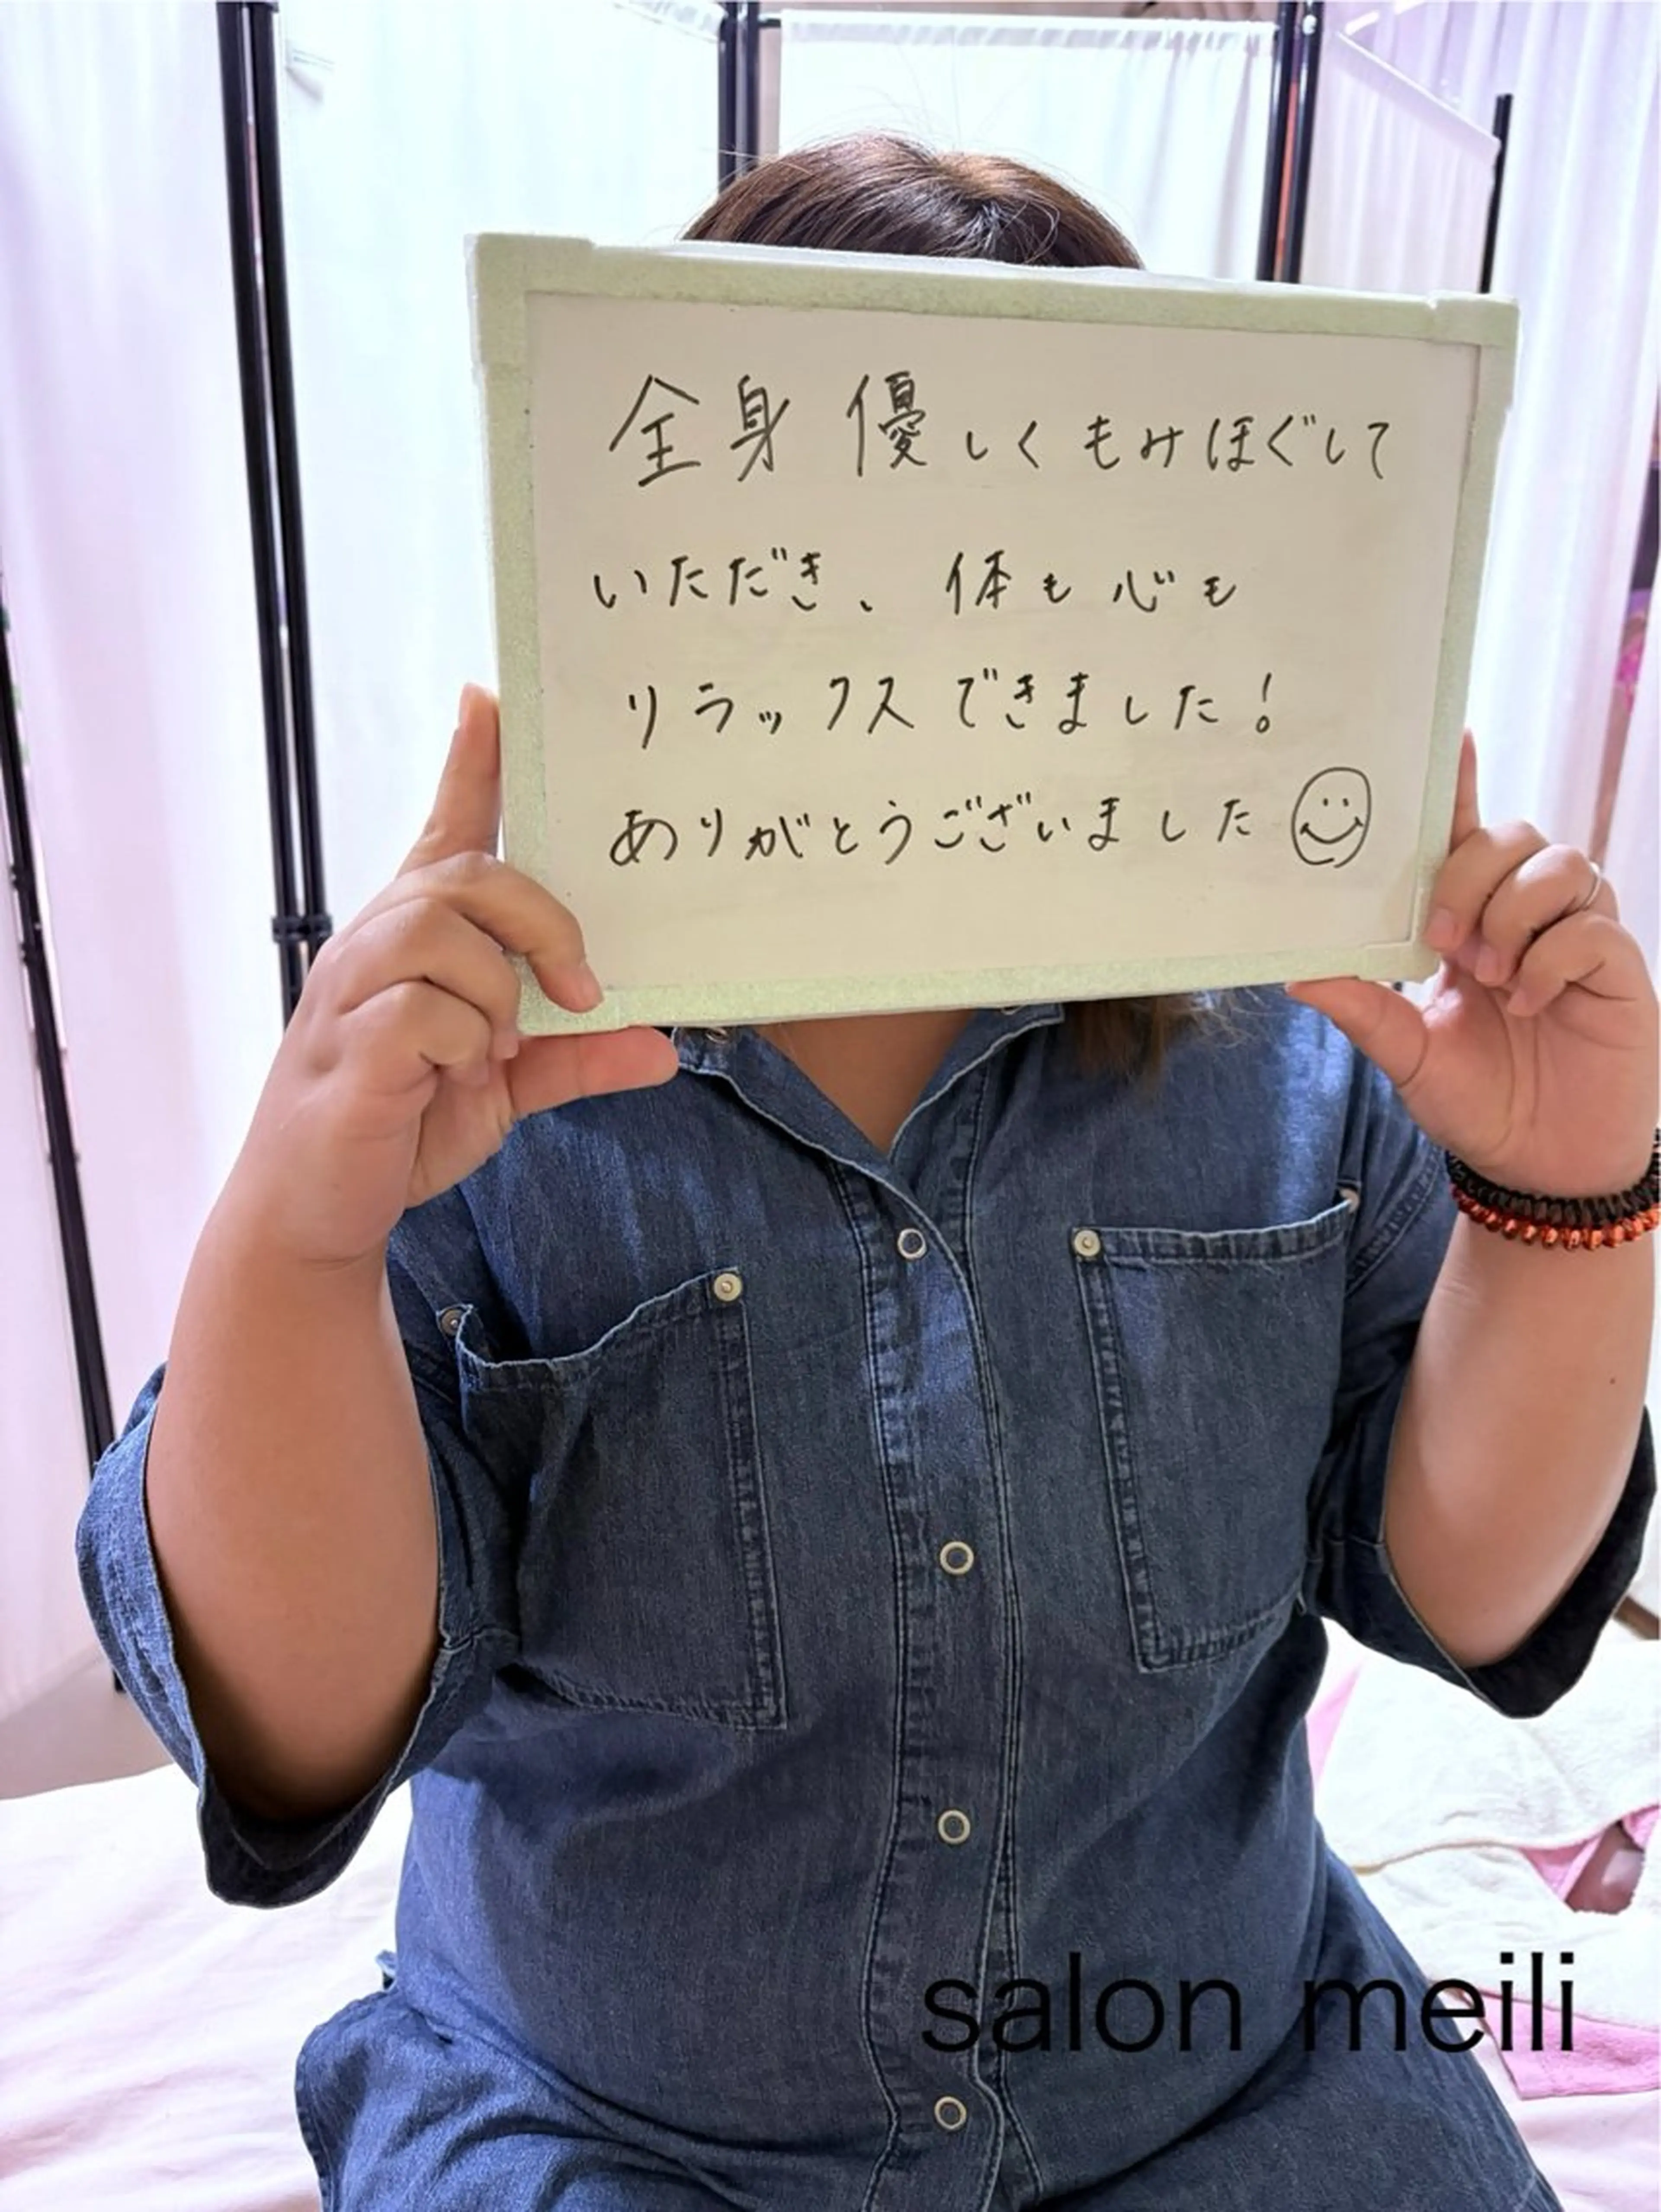 全身優しくもみほぐして
いただき、体も心も
リラックスできました!
ありがとうございました
salon meili